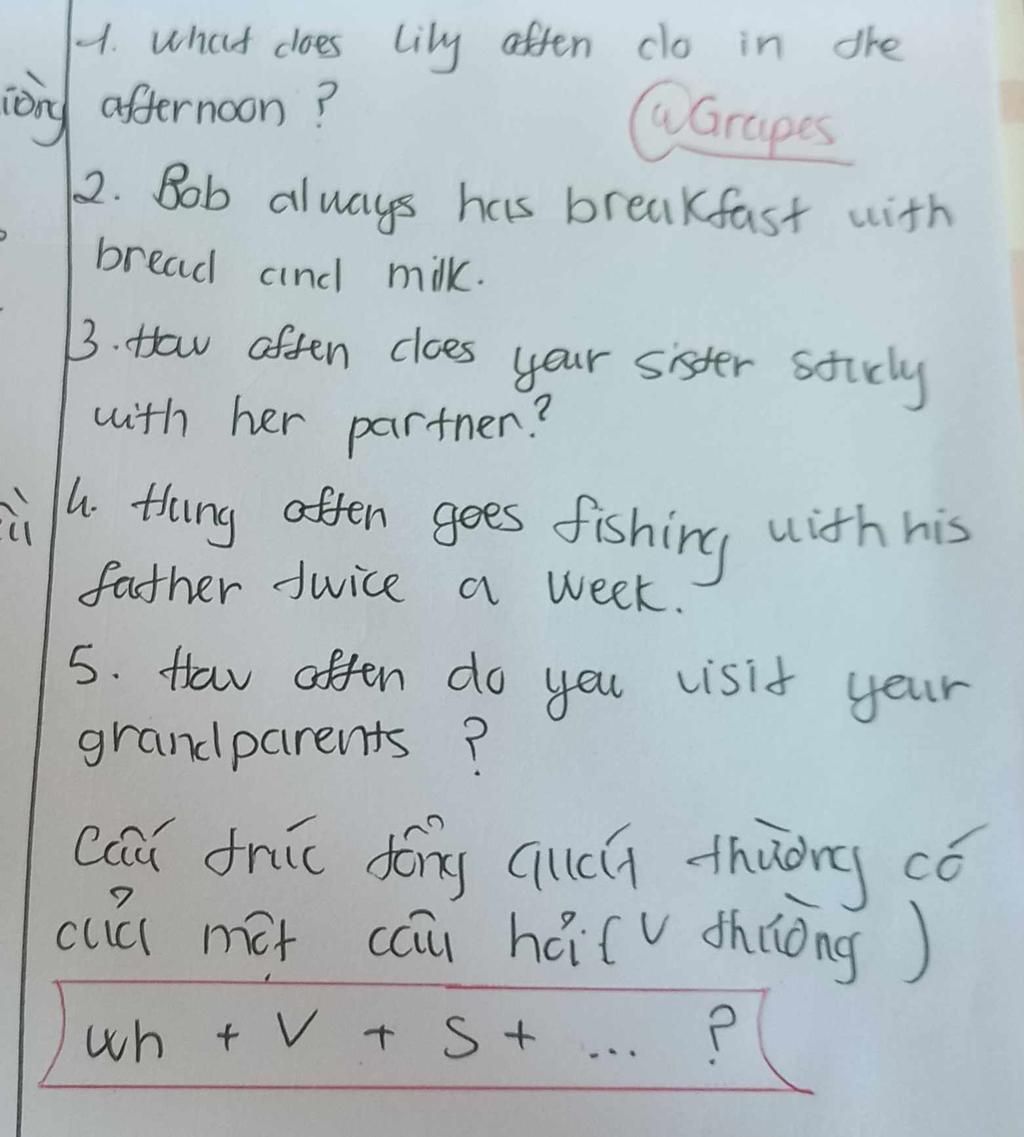 1. What does Lily often do in the
iờng afternoon ?
@Grapes
2. Bob always has breakfast with
bread and milk.
3. How often does your sister study
with her partner?
4. Hung often goes fishing with his
father twice a week.
5. How often do you visit your
grandparents ?
Cấu trúc tổng quát thường có
của một câu hỏi ( V thường )
wh + V + S + ... ?